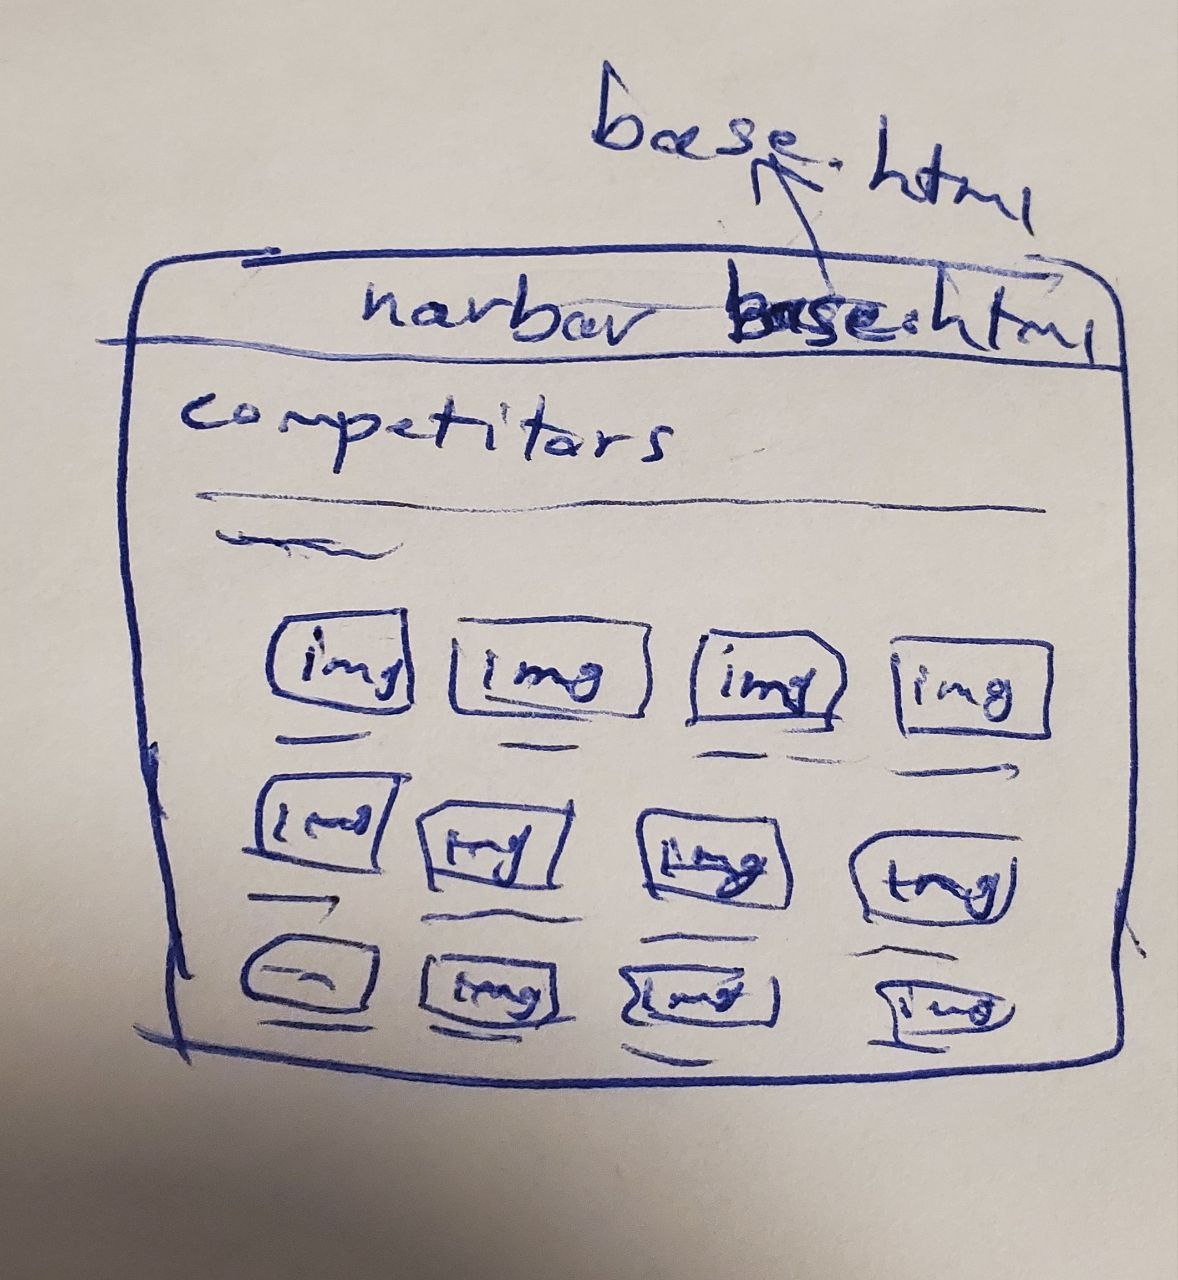 base.html
navbar base.html
competitors
img img img img
img img img img
img img img